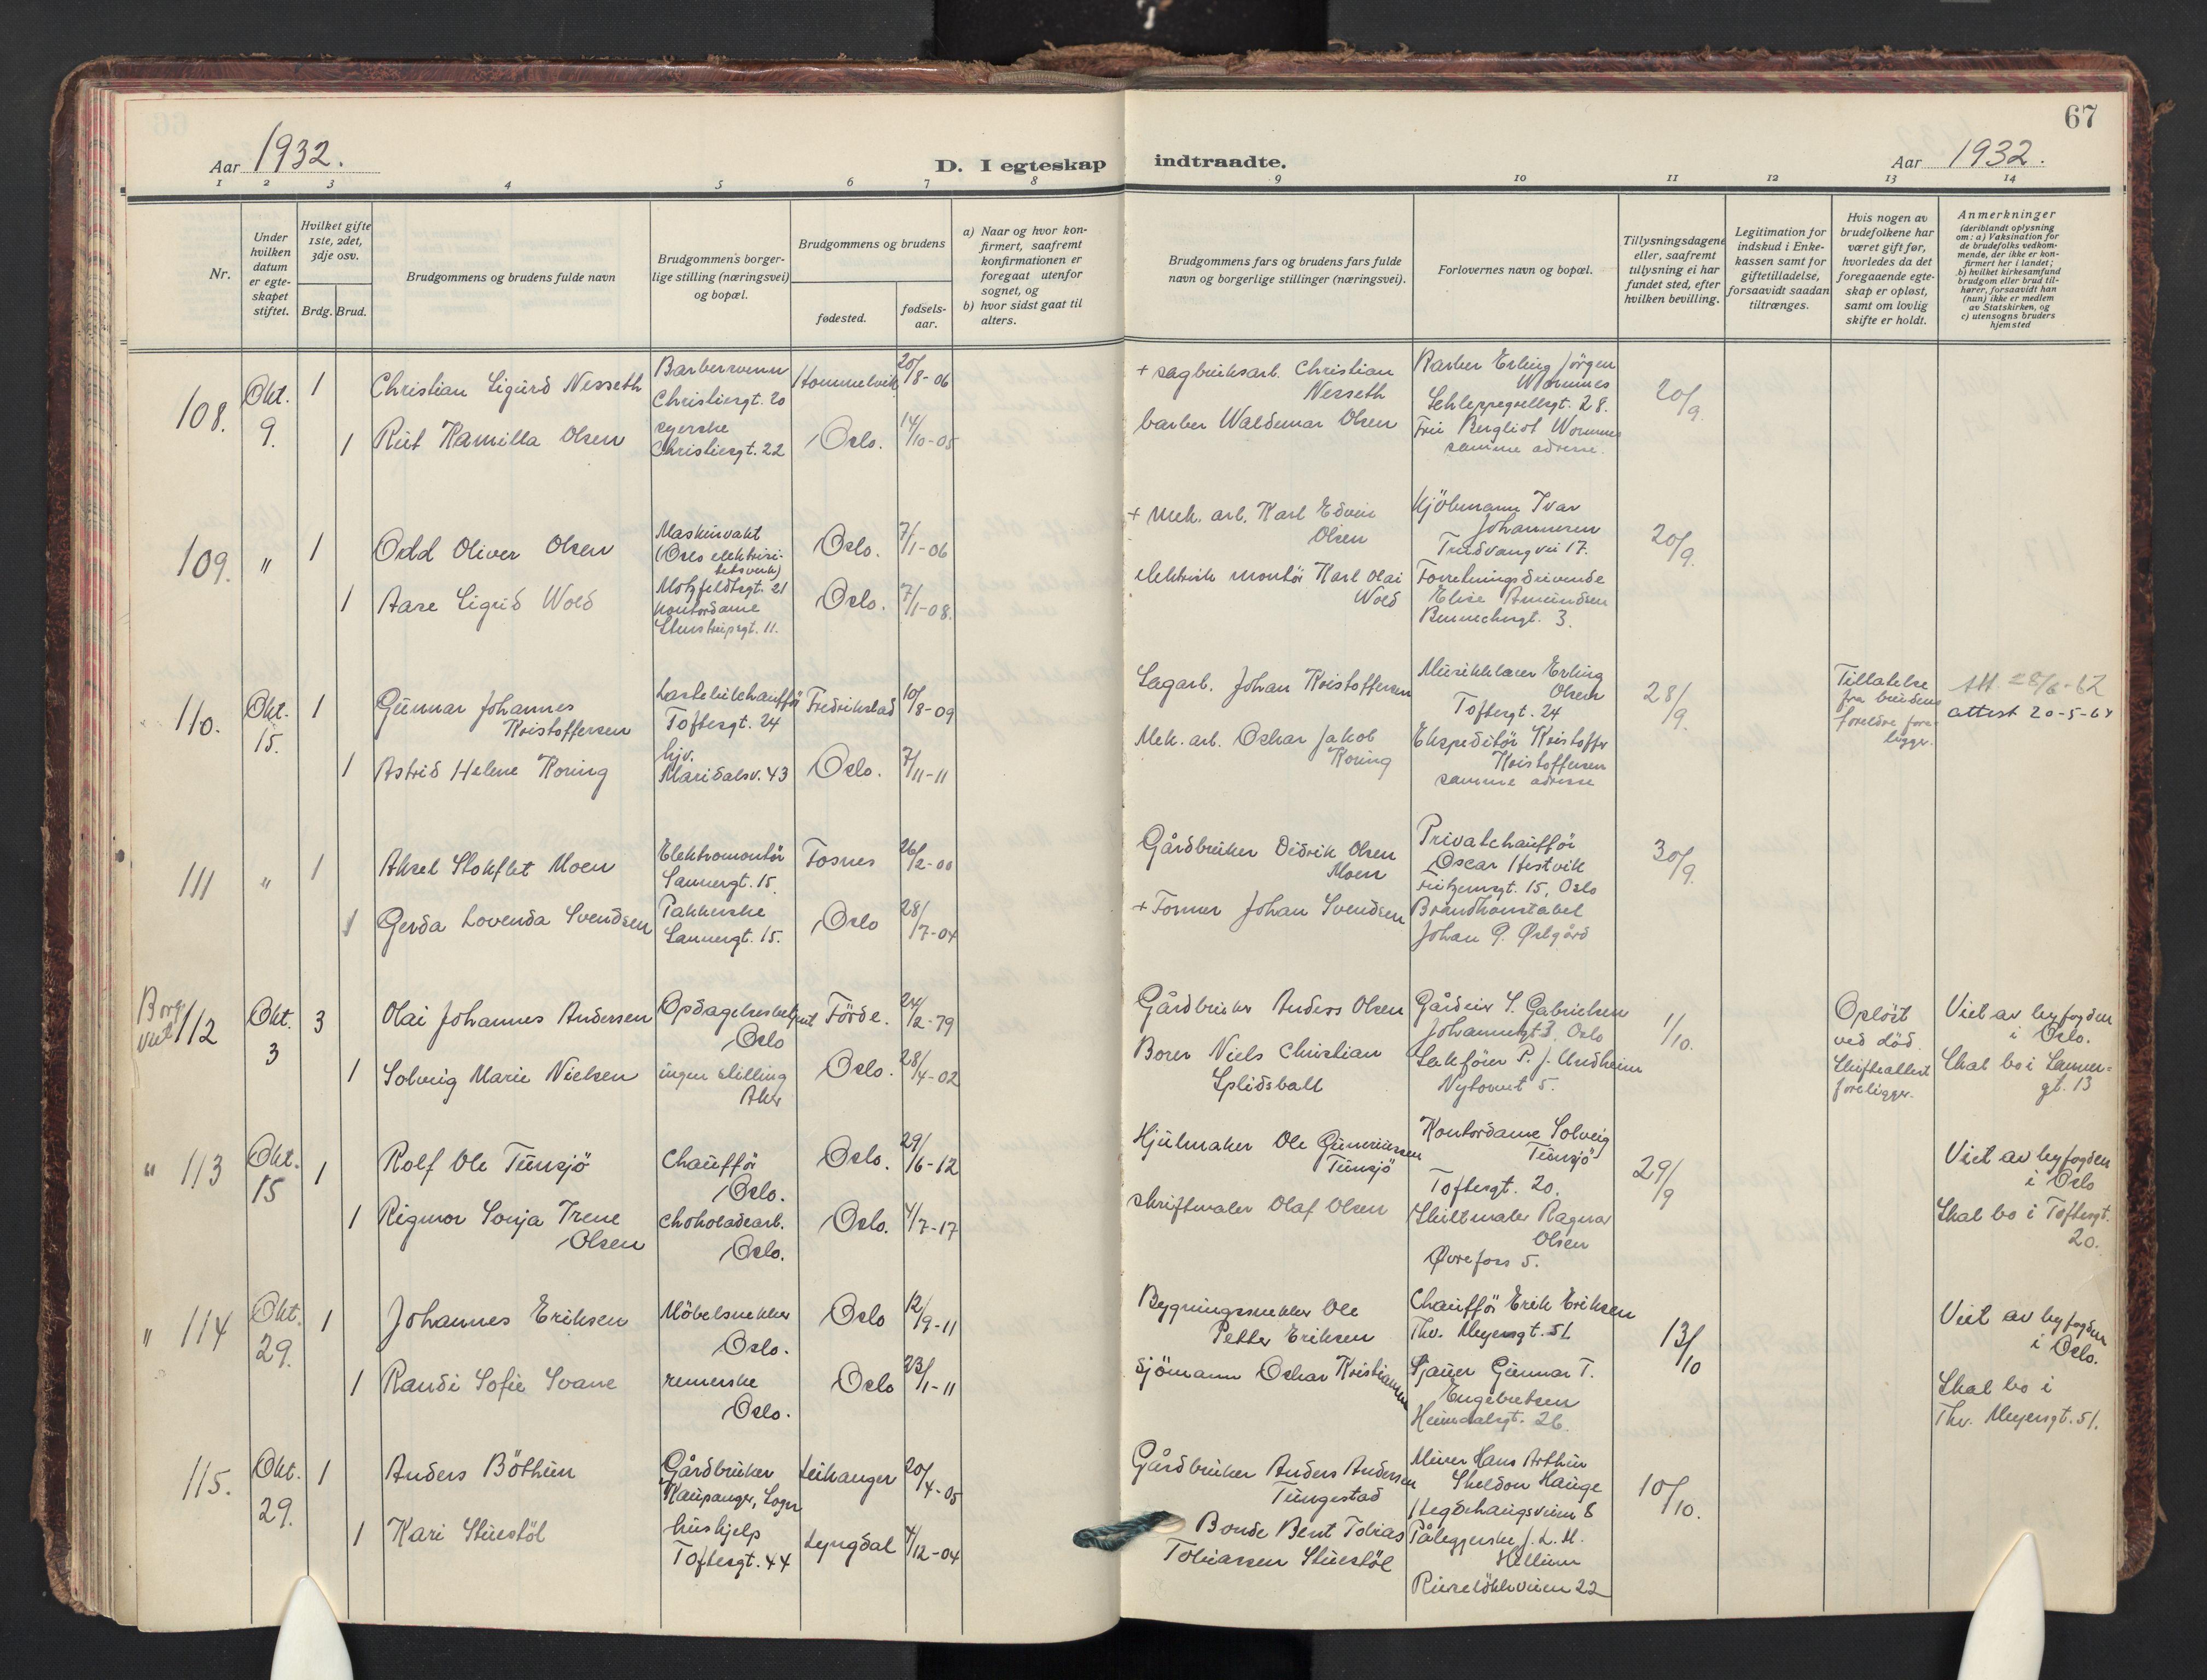 67
Aar 1932.
D. I egteskap indtraadte.
Aar 1932.
1 2 3 4 5 6 7 8 9 10 11 12 13 14
Nr.
Under
hvilken
datum
er egte-
skapet
stiftet.
Hvilket gifte
1ste, 2det,
3dje osv.
Brdg. Brud.
Brudgommens og brudens fulde navn
Brudgommens borger-
lige stilling (næringsvei)
og bopæl.
Brudgommens og brudens
fødested.
fødsels-
aar.
a) Naar og hvor kon-
firmert, saafremt
konfirmationen er
foregaat utenfor
sognet, og
b) hvor sidst gaat til
alters.
Brudgommens fars og brudens fars fulde
navn og borgerlige stillinger (næringsvei).
Forlovernes navn og bopæl.
Tillysningsdagene
eller, saafremt
tillysning ei har
fundet sted, efter
hvilken bevilling.
Legitimation for
indskud i Enke-
kassen samt for
giftetilladelse,
forsaavidt saadan
tiltrænges.
Hvis nogen av
brudefolkene har
været gift før,
hvorledes da det
foregaaende egte-
skap er opløst,
samt om lovlig
skifte er holdt.
Anmerkninger
(deriblandt oplysning
om: a) Vaksination for
de brudefolks vedkom-
mende, der ikke er kon-
firmert her i landet;
b) hvilket kirkesamfund
brudgom eller brud til-
hører, forsaavidt han
(hun) ikke er medlem
av Statskirken, og
c) utensogns bruders
hjemsted
108.
Okt.
9.
1
Christian Sigurd Nesseth
Barbersvenn
Christiesgt. 20
Hommelvik
20/8-06
+ sagbruksarb. Christian
Nesseth
Barber Erling Jörgen
Wormnes
Schleppegrellsgt. 28.
20/9.
1
Rut Kamilla Olsen
syerske
Christiesgt. 22
Oslo.
14/10-05
barber Waldemar Olsen
Fru Bergliot Wormnes
samme adresse.
109.
"
1
Odd Oliver Olsen
Maskinvakt
(Oslo elektrisi-
tetsverk)
Motzfeldtsgt. 21
Oslo.
7/1-06
+ Mek. arb. Karl Edvin
Olsen
Kjöbmann Ivar
Johannesen
Trudvangvei 17.
20/9.
1
Aase Sigrid Wold
kontordame
Stenstrupsgt. 11.
Oslo.
7/1-08.
elektrik montör Karl Olai
Wold
Forretningsdrivende
Elise Amundsen
Bennechesgt. 3.
110.
Okt.
15.
1
Gunnar Johannes
Kristoffersen
Lastebilchaufför
Toftesgt. 24
Fredrikstad
10/8-09
Sagarb. Johan Kristoffersen
Musikklærer Erling
Olsen
Toftesgt. 24
28/9.
Tillatelse
fra brudens
foreldre fore-
ligger.
Att 28/6-62
attest 20-5-64
1
Astrid Helene Koring
hjv.
Maridalsv. 43
Oslo.
7/11-11
Mek. arb. Oskar Jakob
Koring
Ekspeditör Kristoffer
Kristoffersen
samme adresse
111
"
1
Aksel Stokflet Moen
Elektromontör
Sannergt. 15.
Fosnes
26/2-00
Gårdbruker Didrik Olsen
Moen
Privatchaufför
Oscar Hestvik
Fritznersgt. 15, Oslo
30/9.
1
Gerda Lovenda Svendsen
Pakkerske
Sannergt. 15.
Oslo
28/7-04
+ Former Johan Svendsen
Brandkonstabel
Johan P. Østgård
Borg.
viet
112
Okt.
3
3
Olai Johannes Andersen
Opdagelsesbetjent
Oslo
Förde.
24/2-79
Gårdbruker Anders Olsen
Gårdeier S. Gabrielsen
Johannesgt 3, Oslo
1/10.
Opløst
ved död.
Skifteattest
foreligger.
Viet av byfogden
i Oslo.
Skal bo i Sanner-
gt. 13
1
Solveig Marie Nielsen
ingen stilling
Aker
Oslo.
28/4-02
Borer Niels Christian
Splidsball
Sakförer P. J. Undheim
Nytorvet 5.
" 113
Okt.
15
1
Rolf Ole Tunsjö
Chaufför
Oslo.
Oslo.
29/6-12
Hjulmaker Ole Gunerussen
Tunsjö
Kontordame Solveig
Tunsjö
Toftesgt. 20.
29/9
Viet av byfogden
i Oslo
Skal bo i Toftesgt.
20.
1
Rigmor Sonja Irene
Olsen
chokoladearb.
Oslo.
Oslo.
4/7-17
skriftmaler Olaf Olsen
Skiltmaler Ragnar
Olsen
Øvrefoss 5.
" 114
Okt.
29.
1
Johannes Eriksen
Möbelsnekker
Oslo.
Oslo
12/9-11
Bygningssnekker Ole
Petter Eriksen
Chaufför Erik Eriksen
Thv. Meyersgt. 51
13/10
Viet av byfogden
i Oslo.
Skal bo i
Thv. Meyersgt. 51.
1
Randi Sofie Svane
Oslo.
Oslo
23/1-11
Sjömann Oskar Kristiansen
Sjauer Gunnar T.
Engebretsen
Heimdalsgt. 26.
115.
Okt.
29.
1
Anders Böthun
Gårdbruker
Kaupanger, Sogn
Leikanger
20/4-05
Gårdbruker Anders Andersen
Tungestad
Murer Hans Arthur
Sheldon Hauge
Hegdehaugsveien 8
10/10.
1
Kari Stuestöl
hushjelp
Toftesgt. 44
Lyngdal
4/12-04
Bonde Bent Tobias
Tobiassen Stuestöl
Påleggerske J. L. M.
Hellum
Ruselökkveien 22